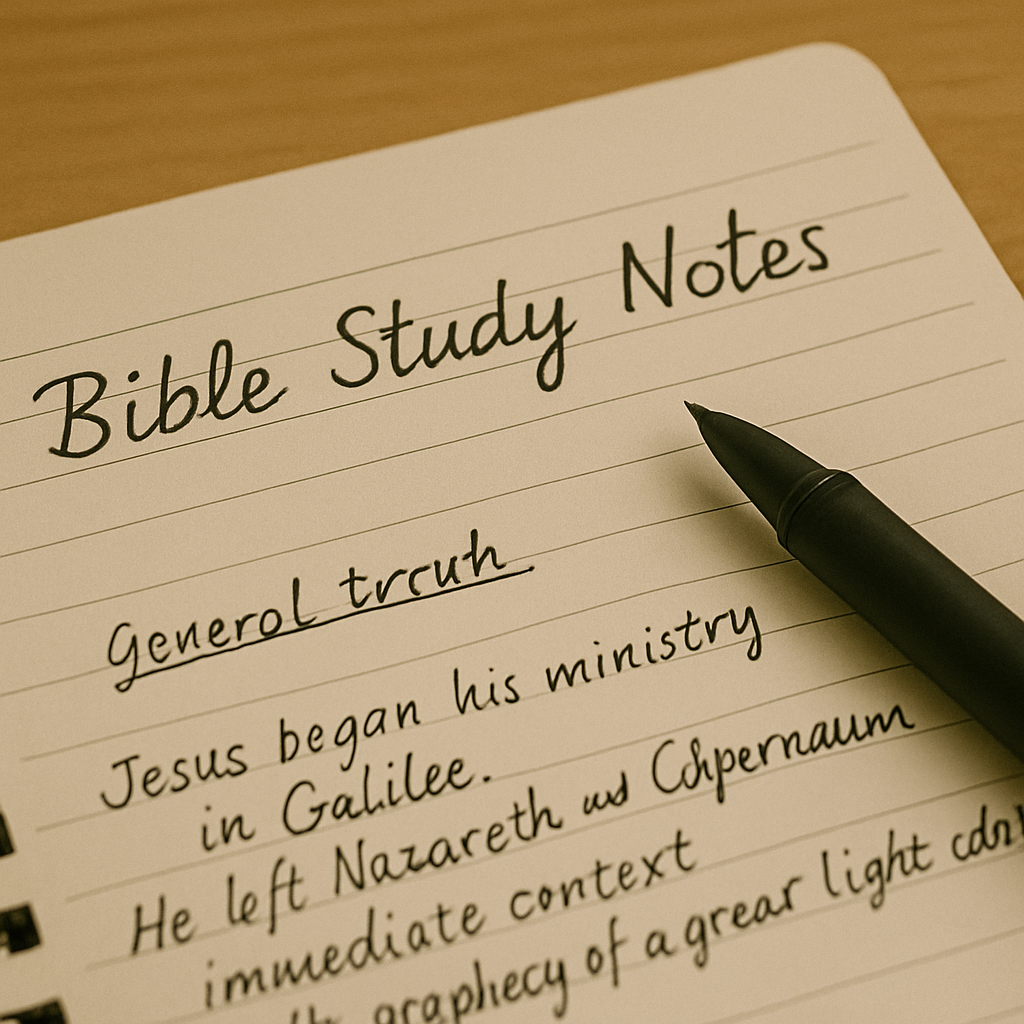 Bible Study Notes
Generol trcuh
Jesus began his ministry
in Galilee.
He left Nazareth and Cohpernaum
immediate context
graphecy of a grear light